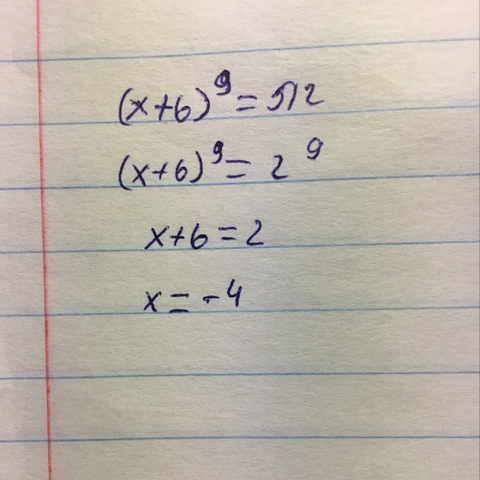 (x+6)⁹ = 512
(x+6)⁹ = 2⁹
x+6 = 2
x = -4